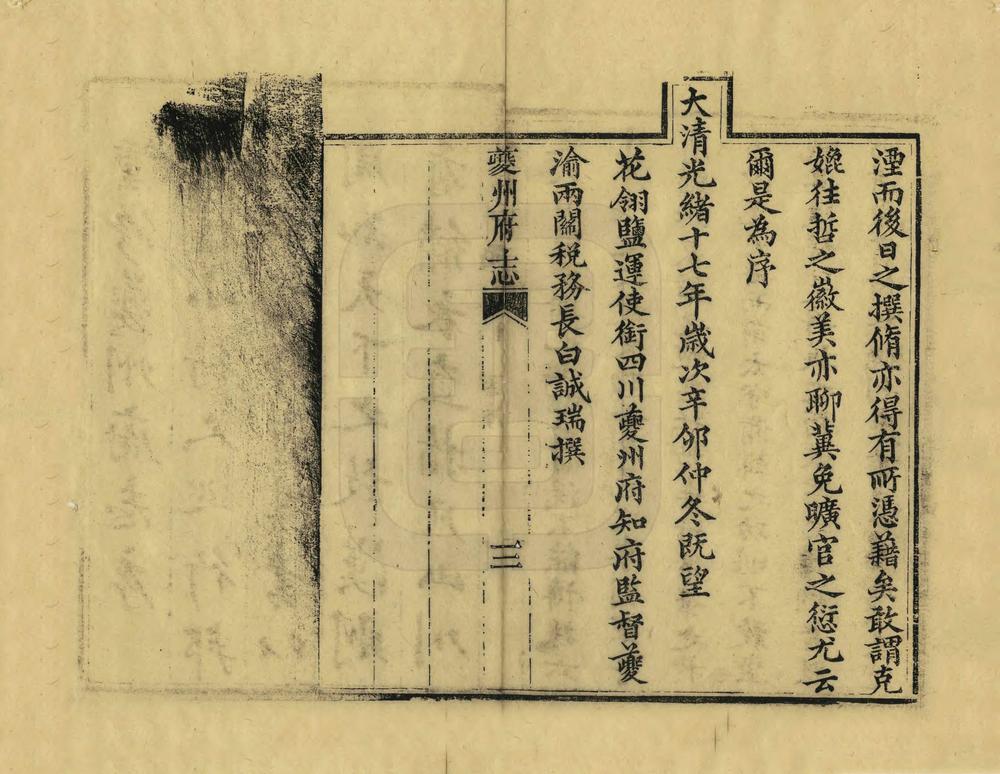 湮而後日之撰脩亦得有所憑藉矣敢謂克
媲往哲之徽美亦聊冀免曠官之愆尤云
爾是為序
大清光緒十七年歲次辛卯仲冬既望
花翎鹽運使銜四川夔州府知府監督夔
渝兩關稅務長白誠瑞撰
夔州府志
三